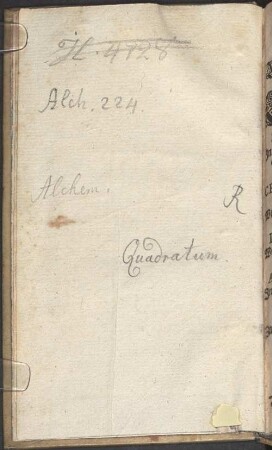 H. 4128.
Alch. 224.
Alchem.
R
Quadratum.